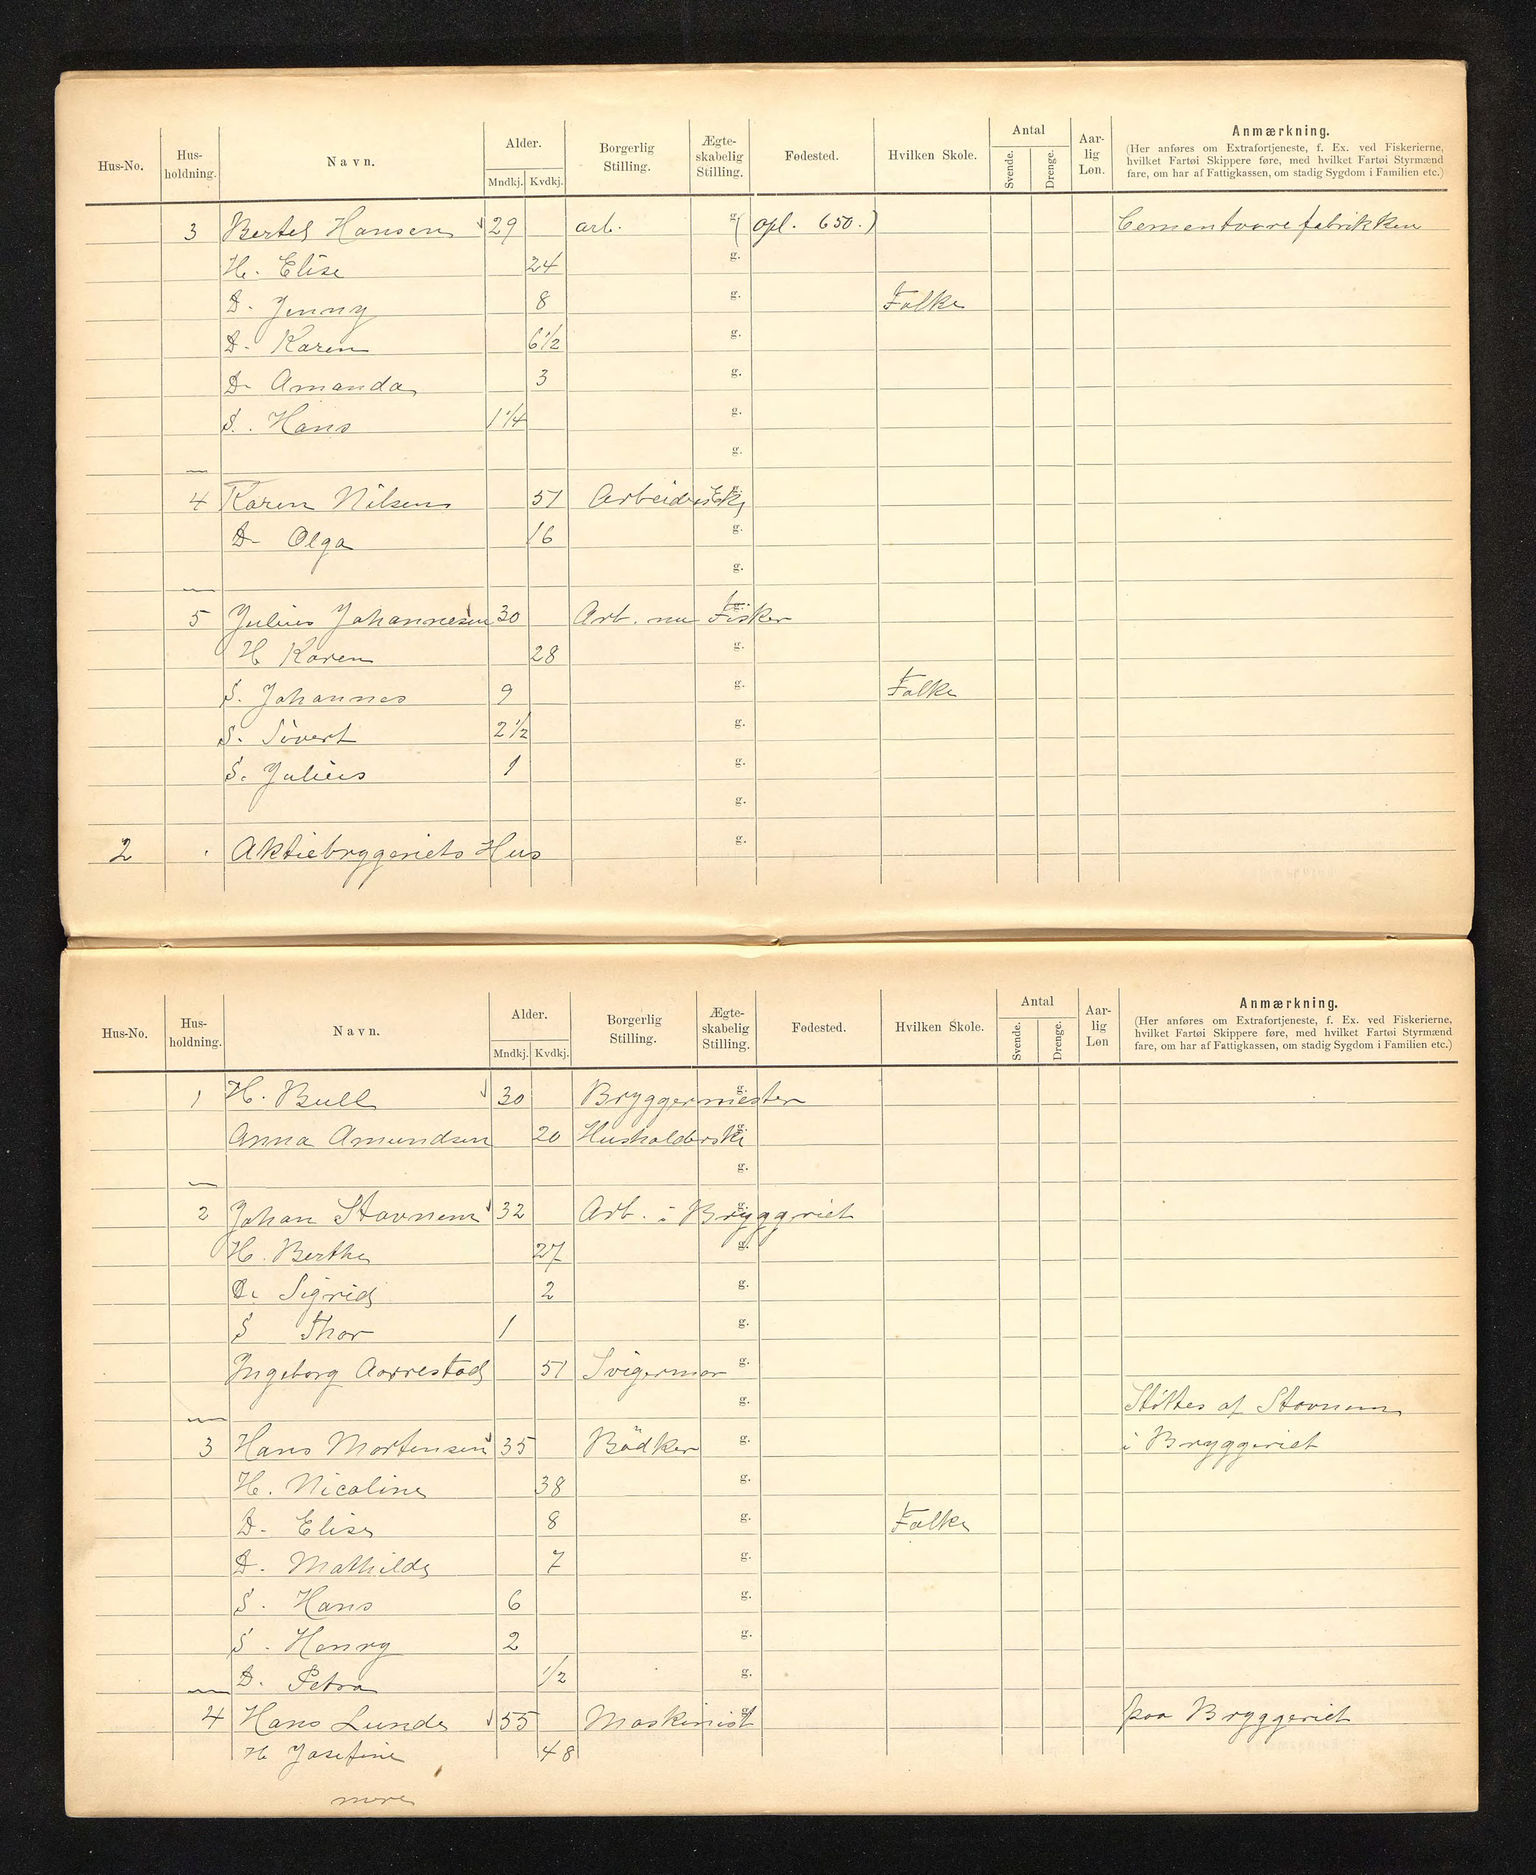 Hus-No. Hus-holdning. Navn. Alder. Mndkj. Kvdkj. Borgerlig Stilling. Ægte-skabelig Stilling. Fødested. Hvilken Skole. Antal Svende. Drenge. Aar-lig Løn. Anmærkning.
(Her anføres om Extrafortjeneste, f. Ex. ved Fiskerierne,
hvilket Fartøi Skippere føre, med hvilket Fartøi Styrmænd
fare, om har af Fattigkassen, om stadig Sygdom i Familien etc.)
3 Bertel Hansen 29 arb. g. (opl. 650.) Cementvarefabrikken
H. Elise 24 g.
D. Jenny 8 g. Folke
D. Karen 6 1/2 g.
D. Amanda 3 g.
S. Hans 1 1/4 g.
g.
4 Karen Nilsen 51 Arbeidersk g.
D. Olga 16 g.
g.
5 Julius Johannesen 30 Arb. nu Fisker g.
H Karen 28 g.
S. Johannes 9 g. Folke
S. Sivert 2 1/2 g.
S. Julius 1 g.
g.
2 Aktiebryggeriets Hus g.
Hus-No. Hus-holdning. Navn. Alder. Mndkj. Kvdkj. Borgerlig Stilling. Ægte-skabelig Stilling. Fødested. Hvilken Skole. Antal Svende. Drenge. Aar-lig Løn Anmærkning.
(Her anføres om Extrafortjeneste, f. Ex. ved Fiskerierne,
hvilket Fartøi Skippere føre, med hvilket Fartøi Styrmænd
fare, om har af Fattigkassen, om stadig Sygdom i Familien etc.)
1 H. Bull 30 Bryggermester g.
Anna Amundsen 20 Husholderske g.
g.
2 Johan Stavnem 32 Arb. i Bryggeriet g.
H. Berthe 27 g.
D. Sigrid 2 g.
S Thor 1 g.
Ingeborg Aarrestad 51 Svigermor g.
g. Støttes af Stavnem
3 Hans Mortensen 35 Bödker g. i Bryggeriet
H. Nicoline 38 g.
D. Elise 8 g. Folke
D. Mathilde 7 g.
S. Hans 6 g.
S. Henry 2 g.
D. Petra 1/2 g.
4 Hans Lunde 55 Maskinist g. paa Bryggeriet
H Josefine 48
mere